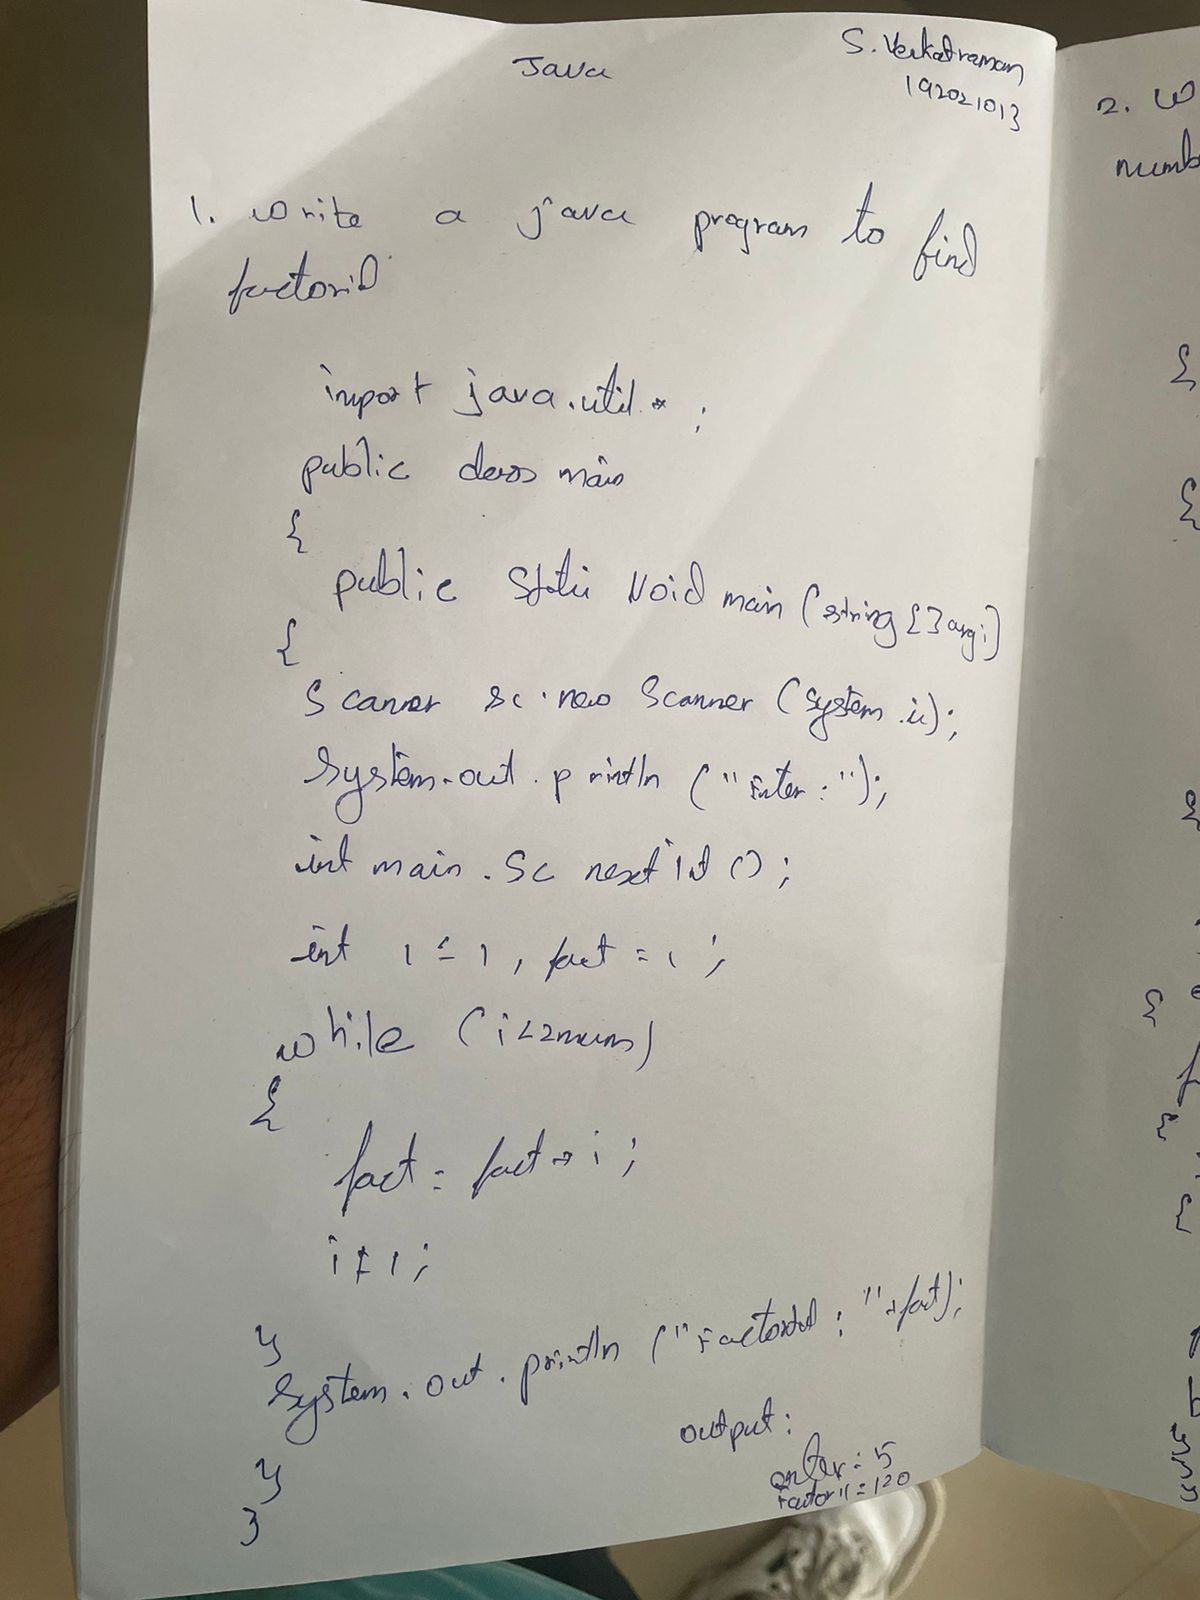 Java
S. Venkatraman
192021013
1. Write a java program to find
factorial
import java.util.*;
public class main
{
public static void main (string [] args)
{
Scanner sc = new Scanner (System.in);
System.out.println ("Enter : ");
int main . Sc next Int ();
int i = 1, fact = 1;
while (i<=num)
{
fact = fact * i;
i++;
}
System.out.println ("Factorial : "+fact);
}
}
output:
enter = 5
Factoril = 120
2. W
numb
{
{